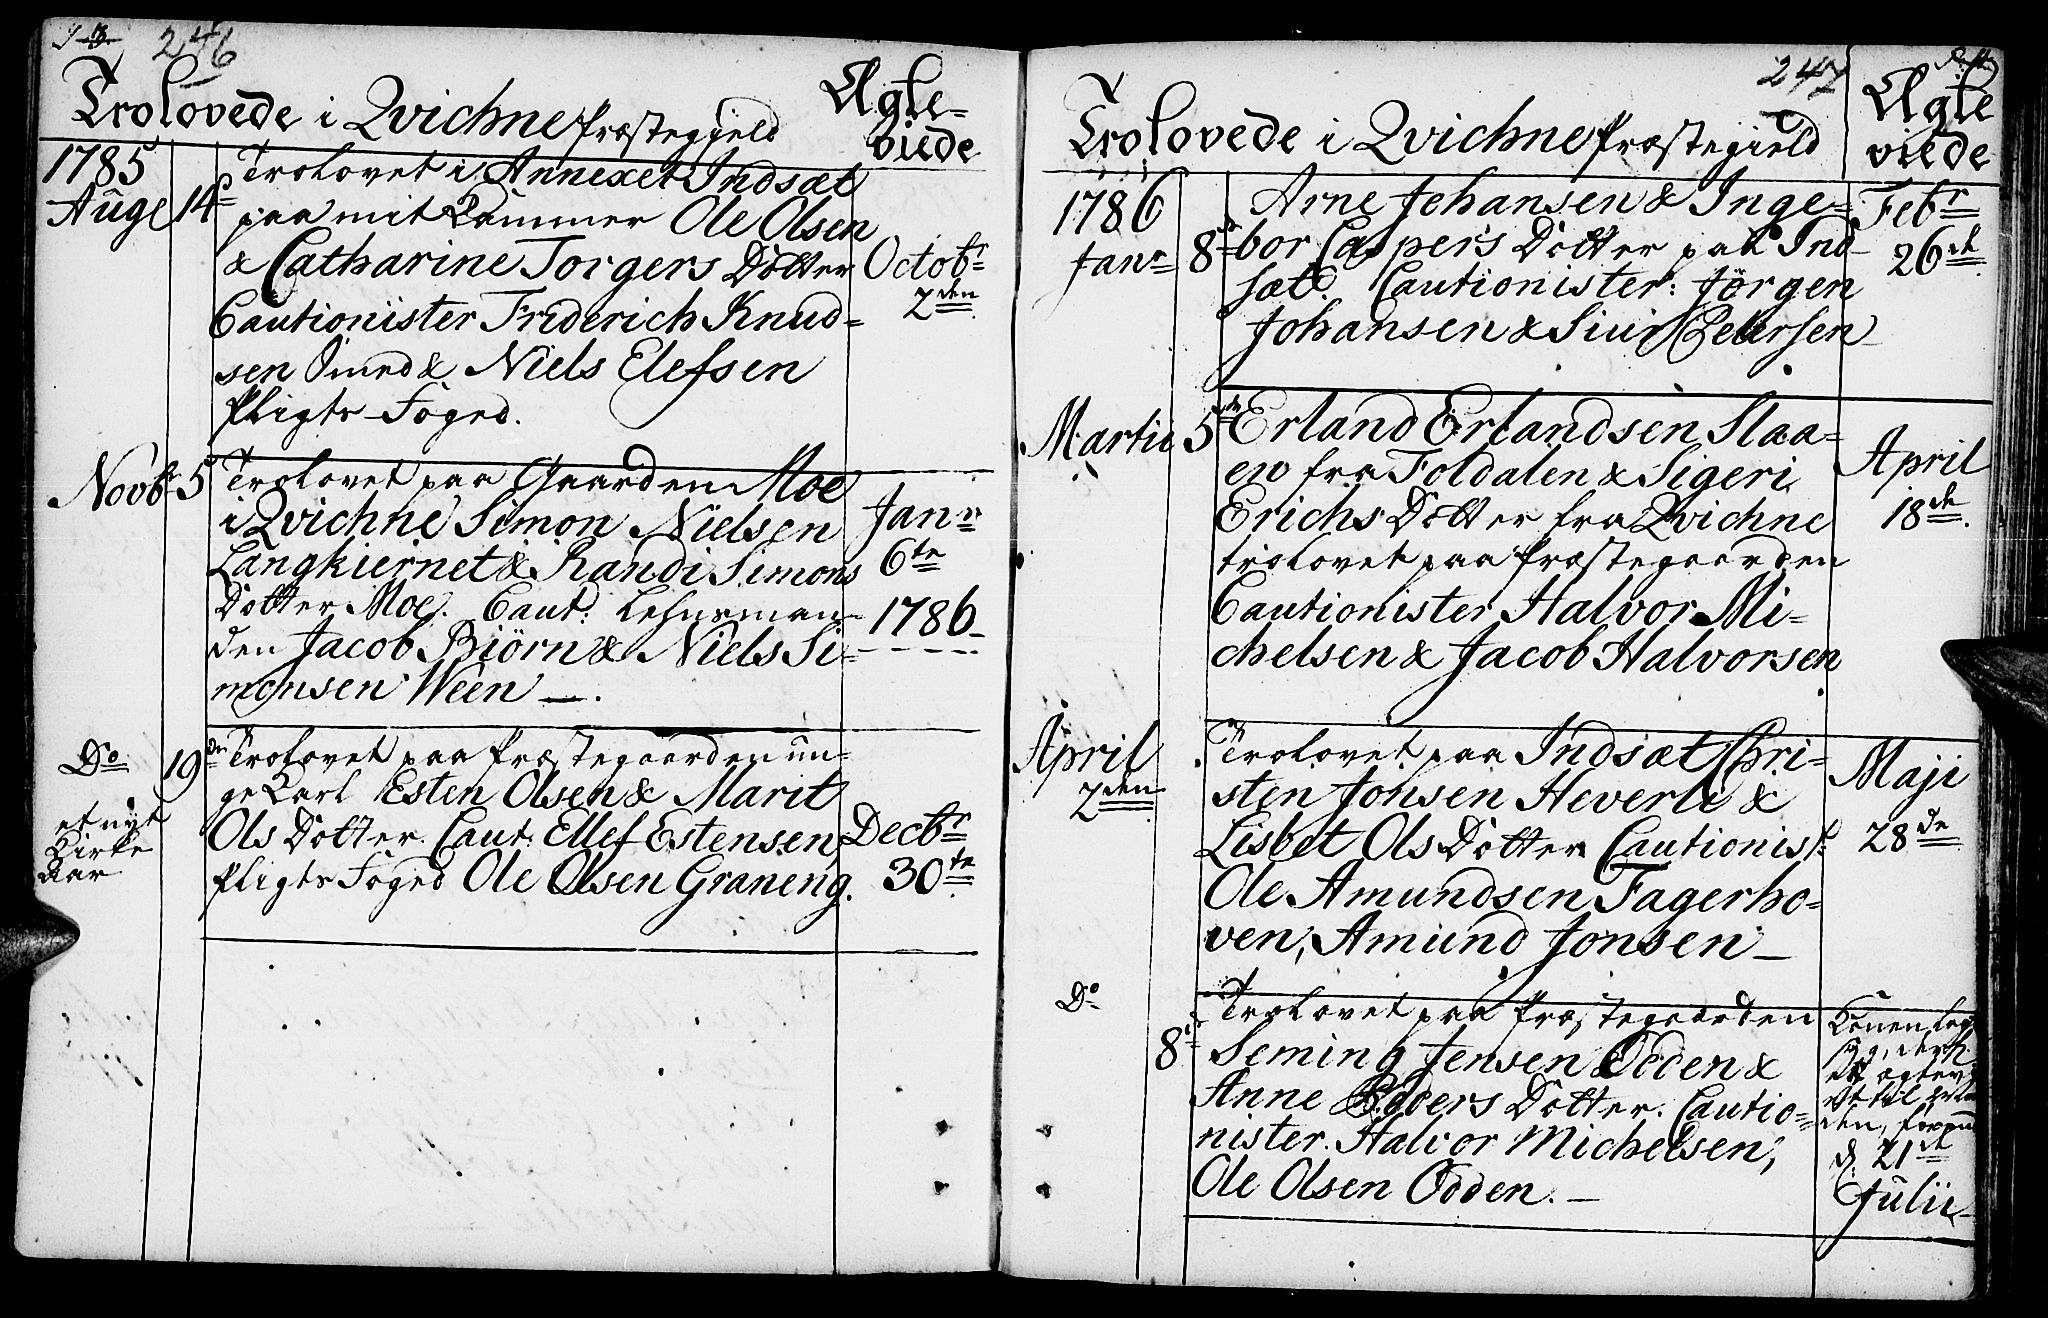 246
Trolovede i Qvichne Præstegjeld
Ægte-
viede
1785
Auge 14
Trolovet i Annexet Indsæt
paa mit Kammer Ole Olsen
& Catharine Torgers Dotter
Cautionister Friderich Knud-
sen Smed & Niels Elefsen
Pligts-Foged.
Octobr
2den
Novbr 5
Trolovet paa Gaarden Moe
i Qvichne Simon Nielsen
Langkiernet & Randi Simons
Dotter Moe. Caut: Lehnsman-
den Jacob Biörn & Niels Si-
monsen Wèen —.
Janr
6te
1786
Do 19den
et nyt
Kirke
Aar
Trolovet paa Præstegaarden un-
ge Karl Esten Olsen & Marit
Ols Dotter. Caut: Ellef Estensen
Pligts Foged Ole Olsen Graneng.
Decbr
30te
247
Trolovede i Qvichne Præstegield
Ægte
viede
1786
Janr 8de
Arne Johansen & Inge-
bor Caspers Dotter paa Ind-
sæt. Cautionister: Jörgen
Johansen & Siur Petersen
Febr
26de
Martii 5de
Erland Erlandsen Slaa-
en fra Foldalen & Sigeri
Erichs Dotter fra Qvichne
trolovet paa Præstegaarden
Cautionister Halvor Mi-
chelsen & Jacob Halvorsen
April
18de.
April
2den
Trolovet paa Indsæt Chri-
sten Jonsen Heverli &
Lisbet Ols Dotter Cautionist:
Ole Amundsen Fagerho-
ven, Amund Jonsen —
Maji
28de
Do
8de
Trolovet paa Præstegaarden
Seming Jensen Odden &
Anne Ders Dotter. Cautio-
nister. Halvor Michelsen,
Ole Olsen Odden. —
Konen
d: 21de
Julii